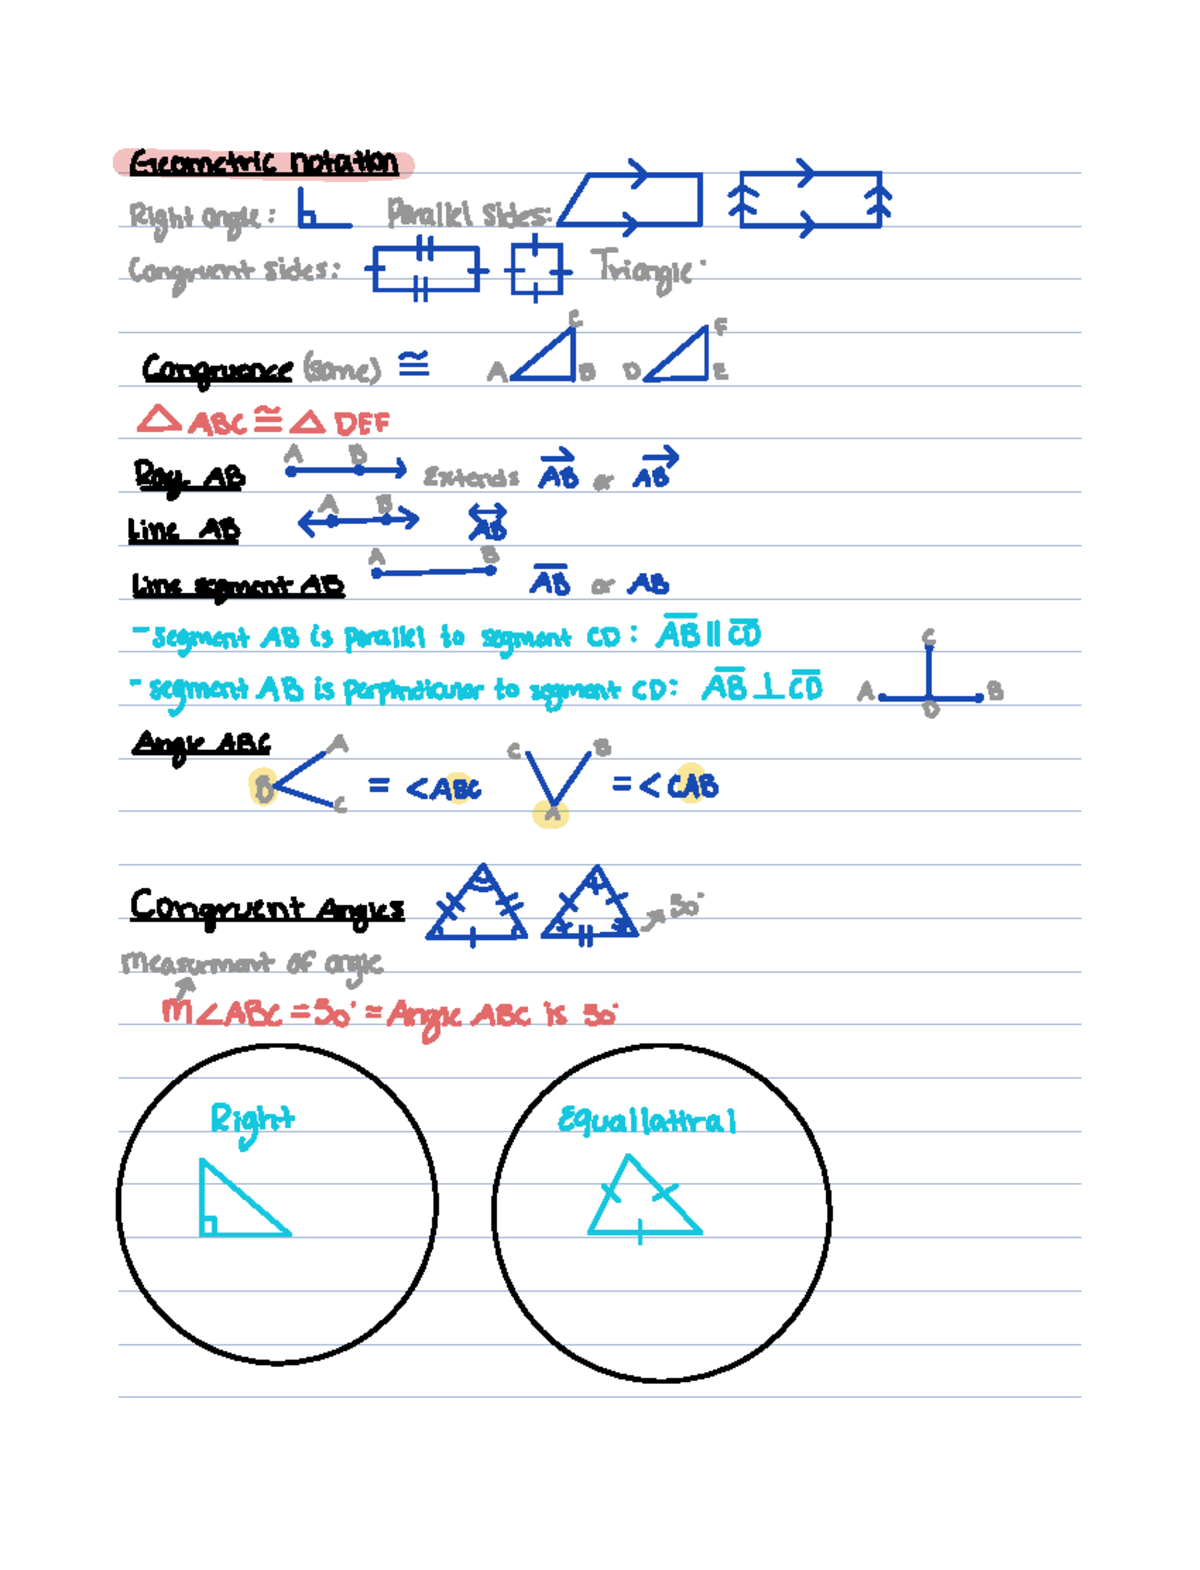 Geometric notation
Right angle: Parallel sides:
Congruent sides: Triangle:
C F
Congruence (same) ≅ A B D E
△ ABC ≅ △ DEF
A B
Ray AB Extends AB or AB
A B
Line AB AB
A B
Line segment AB AB or AB
- segment AB is parallel to segment CD: AB || CD
C
- segment AB is perpindicular to segment CD: AB ⊥ CD A D B
Angle ABC A C B
B = <ABC = < CAB
C A
Congruent Angles 50°
measurment of angle
m∠ABC = 50° = Angle ABC is 50°
Right Equallatiral